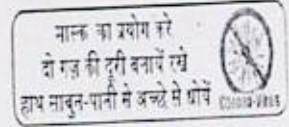 मास्क का प्रयोग करे
दो गज़ की दूरी बनायें रखे
हाथ साबुन-पानी से अच्छे से धोयें
CORONA-VIRUS